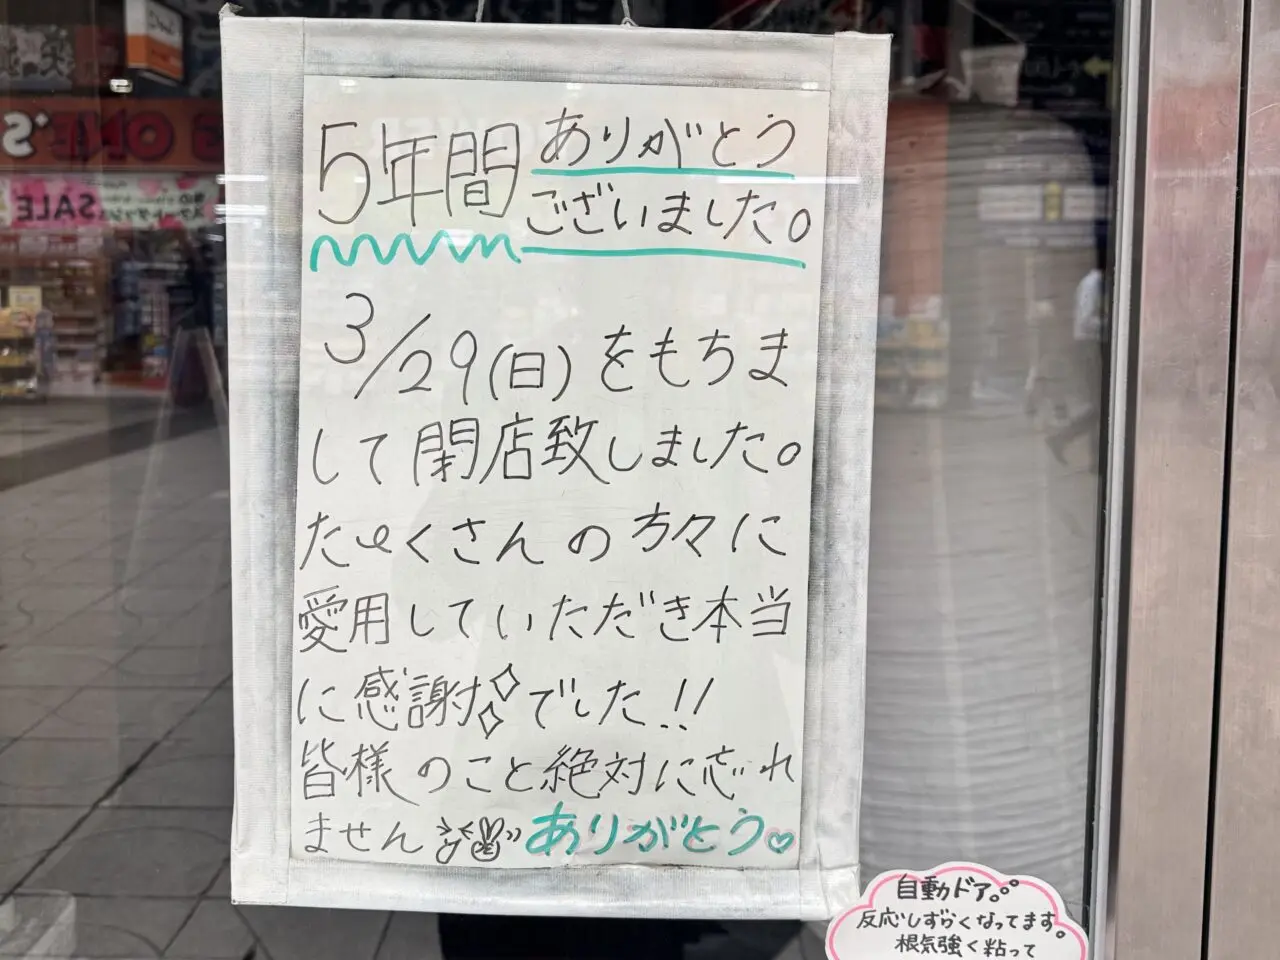 5年間 ありがとう
ございました。
3/29(日)をもちま
して閉店致しました。
たくさんの方々に
愛用していただき本当
に感謝でした!!
皆様のこと絶対に忘れ
ません ありがとう♡
自動ドア。
反応しずらくなってます。
根気強く粘って
ONE'S
SALE